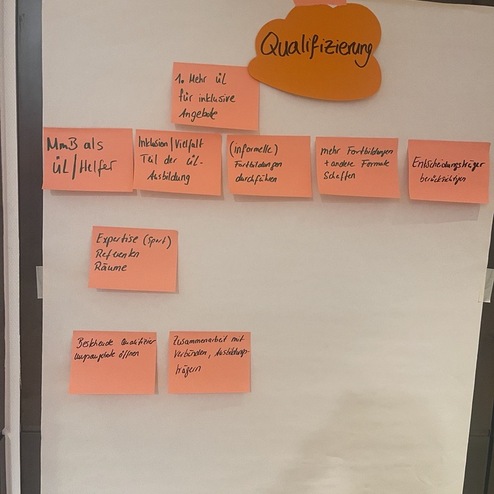 Qualifizierung
1. Mehr ÜL
für inklusive
Angebote
MmB als
ÜL/Helfer
Inklusion/Vielfalt
Teil der ÜL-
Ausbildung
(informelle)
Fortbildungen
durchführen
mehr Fortbildungen
+ andere Formate
schaffen
Entscheidungsträger
berücksichtigen
Expertise (Sport)
Referenten
Räume
Bestehende Qualifizier-
ungsangebote öffnen
Zusammenarbeit mit
Verbänden, Ausbildungs-
trägern